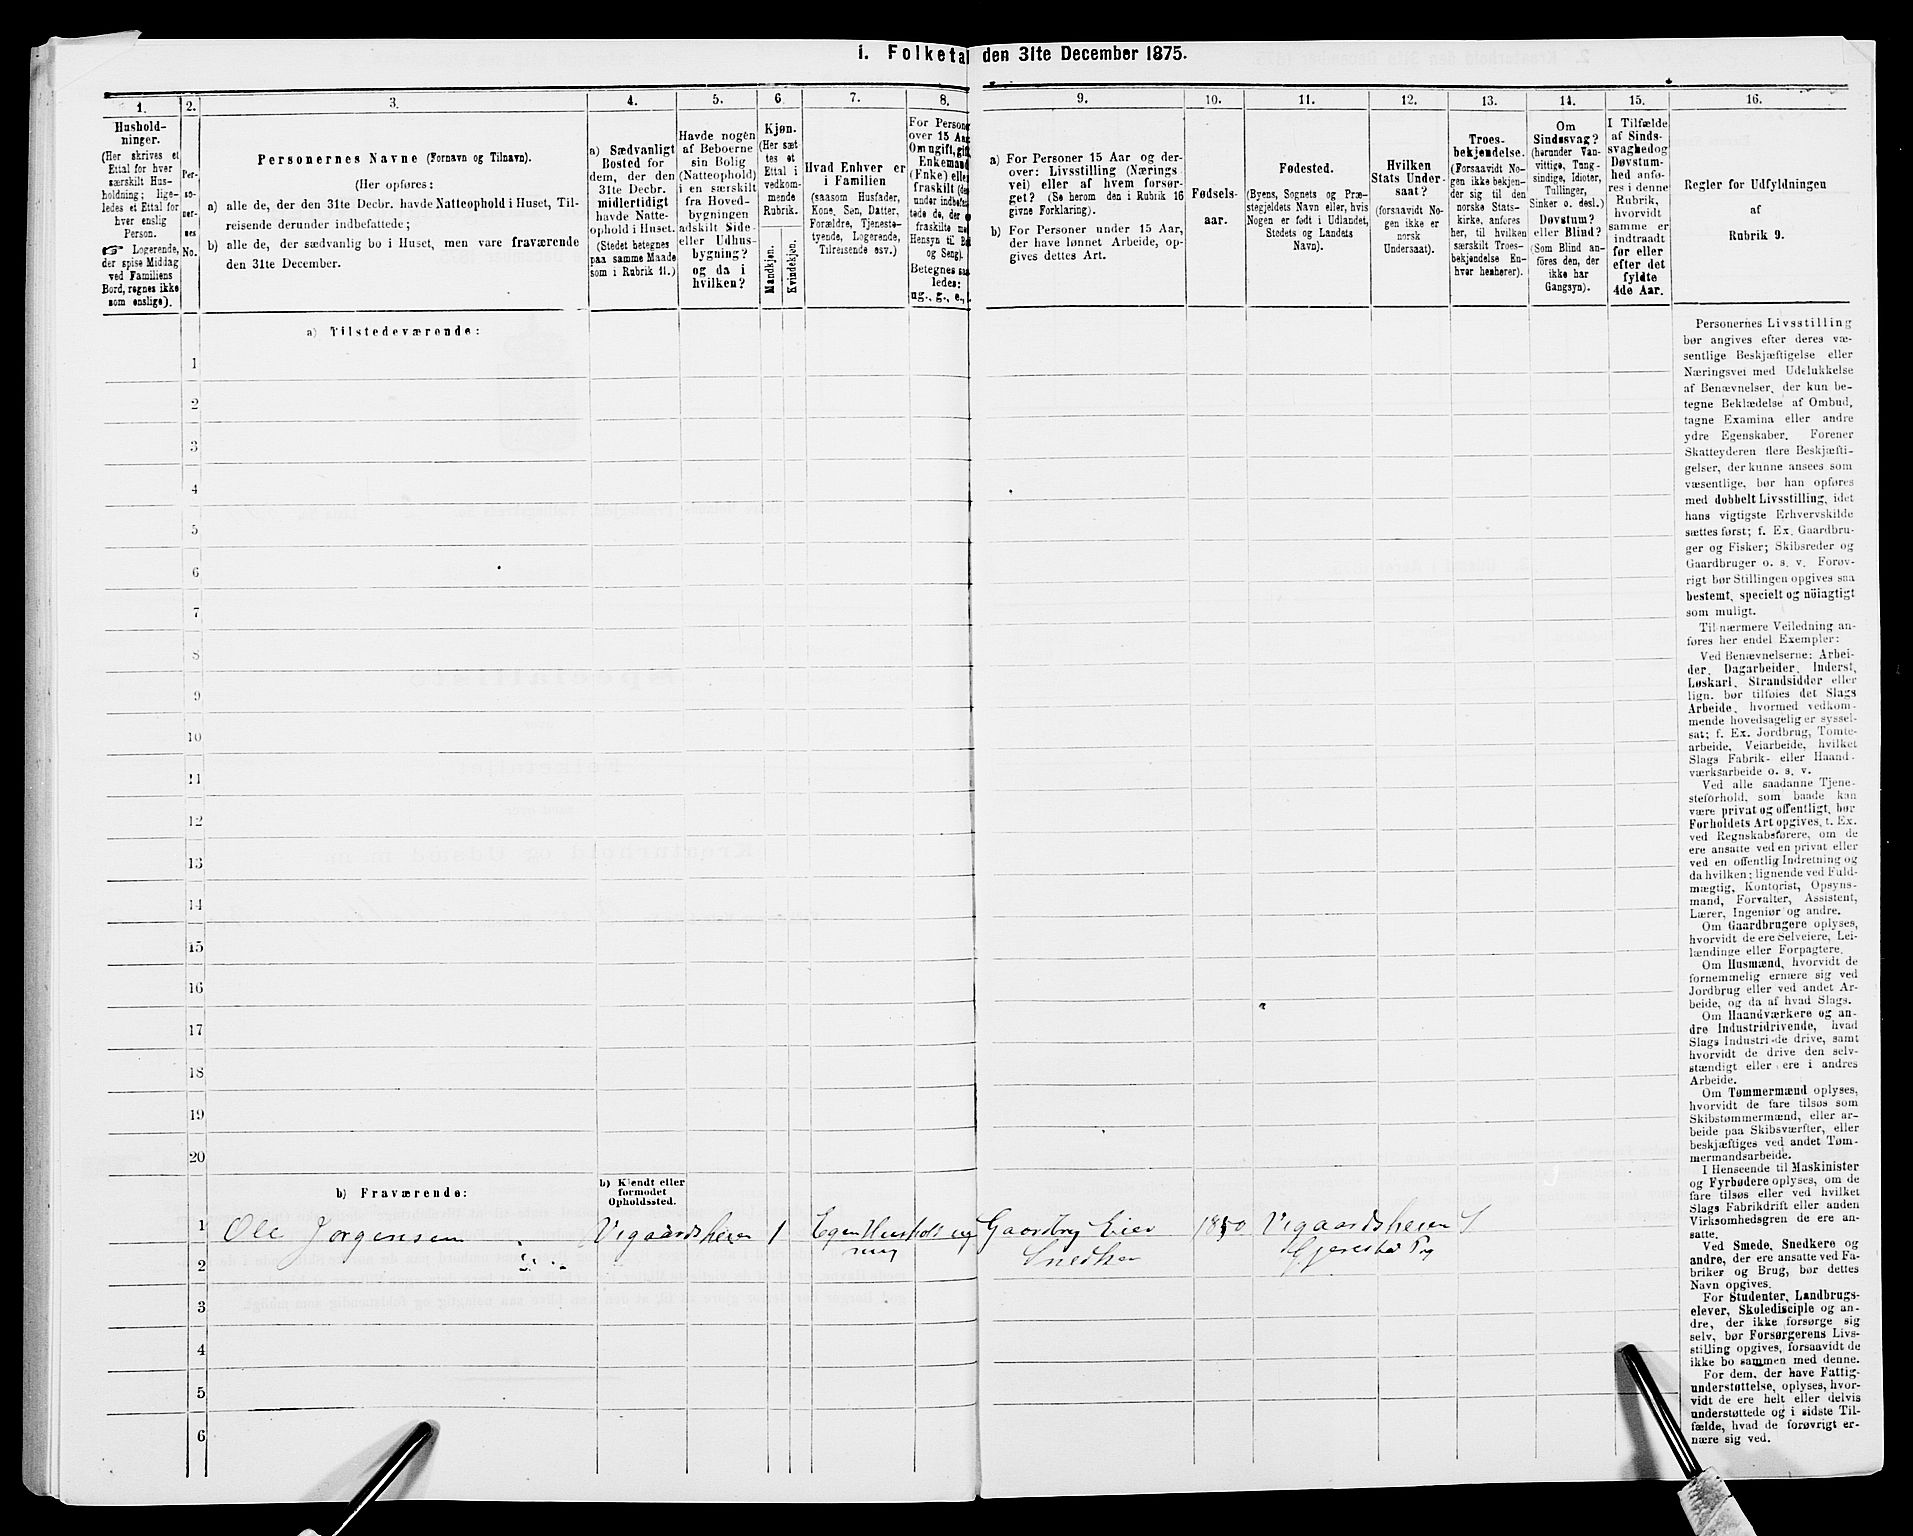 1. Folketal den 31te December 1875.
1.
2.
3.
4.
5.
6
7.
8.
9.
10.
11.
12.
13.
14.
15.
16.
Hushold-
ninger.
(Her skrives et
Ettal for hver
særskilt Hus-
holdning; lige-
ledes et Ettal for
hver enslig
Person.
Logerende,
der spise Middag
ved Familiens
Bord, regnes ikke
som enslige).
Per-
so-
ner-
nes
No.
Personernes Navne (Fornavn og Tilnavn).
(Her opføres:
a) alle de, der den 31te Decbr. havde Natteophold i Huset, Til-
reisende derunder indbefattede;
b) alle de, der sædvanlig bo i Huset, men vare fraværende
den 31te December.
a) Sædvanligt
Bosted for
dem, der den
31te Decbr.
midlertidigt
havde Natte-
ophold i Huset.
(Stedet betegnes
paa samme Maade
som i Rubrik 11.)
Havde nogen
af Beboerne
sin Bolig
(Natteophold)
i en særskilt
fra Hoved-
bygningen
adskilt Side-
eller Udhus-
bygning?
og da i
hvilken?
Kjøn.
(Her sæt
tes et
Ettal i
vedkom-
mende
Rubrik.
Mandkjøn.
Kvindekjøn.
Hvad Enhver er
i Familien
(saasom Husfader,
Kone, Søn, Datter,
Forældre, Tjeneste-
tyende, Logerende,
Tilreisende osv.)
For Persone
over 15 Aar
Om ugift, gift
Enkemand
(Enke) eller
fraskilt (de
under indbefat
tede de, der
fraskilte m
Hensyn til B
og Seng).
Betegnes saa
ledes:
ug., g., e.,
a) For Personer 15 Aar og der-
over: Livsstilling (Nærings
vei) eller af hvem forsør-
get? (Se herom den i Rubrik 16
givne Forklaring).
b) For Personer under 15 Aar,
der have lønnet Arbeide, op-
gives dettes Art.
Fødsels-
aar.
Fødested.
(Byens, Sognets og Præ-
stegjeldets Navn eller, hvis
Nogen er født i Udlandet,
Stedets og Landets
Navn).
Hvilken
Stats Under
saat?
(forsaavidt No-
gen ikke er
norsk
Undersaat).
Troes-
bekjendelse.
(Forsaavidt No-
gen ikke bekjen-
der sig til den
norske Stats-
kirke, anføres
her, til hvilken
særskilt Troes-
bekjendelse En-
hver henhører).
Om
Sindssvag?
(herunder Van-
vittige, Tung-
sindige, Idioter,
Tullinger,
Sinker o. desl.)
Døvstum?
eller Blind?
(Som Blind an-
føres den, der
ikke har
Gangsyn).
I Tilfælde
af Sinds-
svaghed og
Døvstum-
hed anfø-
res i denne
Rubrik,
hvorvidt
samme er
indtraadt
før eller
efter det
fyldte
4de Aar.
Regler for Udfyldningen
af
Rubrik 9.
a) Tilstedeværende:
1
2
3
4
5
6
7
8
9
10
11
12
13
14
15
16
17
18
19
20
b) Fraværende:
b) Kjendt eller
formodet
Opholdssted.
1 Ole Jørgensen Vegaardsheien 1 Egen Husholdning Gaardbr Eier 1850 Vegaardsheien S
Snedker Gjerestad Pg
2
3
4
5
6
Personernes Livsstilling
bør angives efter deres væ-
sentlige Beskjæftigelse eller
Næringsvei med Udelukkelse
af Benævnelser, der kun be-
tegne Beklædelse af Ombud,
tagne Examina eller andre
ydre Egenskaber. Forener
Skatteyderen flere Beskjæfti-
gelser, der kunne ansees som
væsentlige, bør han opføres
med dobbelt Livsstilling, idet
hans vigtigste Erhvervskilde
sættes først; f. Ex. Gaardbru-
ger og Fisker; Skibsreder og
Gaardbruger o. s. v. Forøv-
rigt bør Stillingen opgives saa
bestemt, specielt og nöiagtigt
som muligt.
Til nærmere Veiledning an-
føres her endel Exempler:
Ved Benævnelserne: Arbei-
der, Dagarbeider, Inderst,
Løskarl, Strandsidder eller
lign. bør tilføies det Slags
Arbeide, hvormed vedkom-
mende hovedsagelig er syssel-
sat; f. Ex. Jordbrug, Tomte-
arbeide, Veiarbeide, hvilket
Slags Fabrik- eller Haand-
værksarbeide o. s. v.
Ved alle saadanne Tjene-
steforhold, som baade kan
være privat og offentligt, bør
Forholdets Art opgives, t. Ex.
ved Regnskabsførere, om de
ere ansatte ved en privat eller
ved en offentlig Indretning og
da hvilken; lignende ved Fuld-
mægtig, Kontorist, Opsyns-
mand, Forvalter, Assistent,
Lærer, Ingeniør og andre.
Om Gaardbrugere oplyses,
hvorvidt de ere Selveiere, Lei-
lændinge eller Forpagtere.
Om Husmænd, hvorvidt de
fornemmelig ernære sig ved
Jordbrug eller ved andet Ar-
beide, og da af hvad Slags.
Om Haandværkere og an-
dre Industridrivende, hvad
Slags Industri de drive, samt
hvorvidt de drive den selv-
stændigt eller ere i andres
Arbeide.
Om Tømmermænd oplyses,
hvorvidt de fare tilsøs som
Skibstømmermænd, eller ar-
beide paa Skibsværfter, eller
beskjæftiges ved andet Tøm-
mermandsarbeide.
I Henseende til Maskinister
og Fyrbødere oplyses, om de
fare tilsøs eller ved hvilket
Slags Fabrikdrift eller anden
Virksomhedsgren de ere an-
satte.
Ved Smede, Snedkere og
andre, der ere ansatte ved Fa-
briker og Brug, bør dettes
Navn opgives.
For Studenter, Landbrugs-
elever, Skoledisciple og an-
dre, der ikke forsørge sig
selv, bør Forsørgerens Livs-
stilling opgives, forsaavidt de
ikke bo sammen med denne.
For dem, der have Fattig-
understøttelse, oplyses, hvor-
vidt de ere helt eller delvis
understøttede og i sidste Til-
fælde, hvad de forøvrigt er-
nære sig ved.